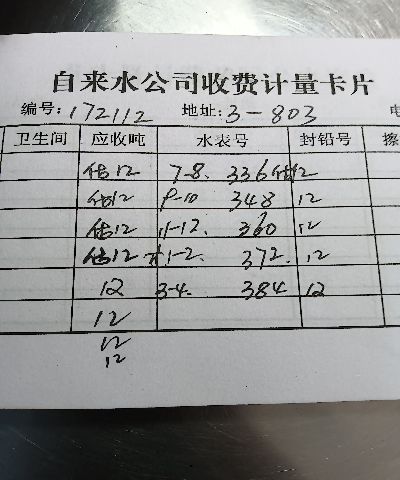 自来水公司收费计量卡片
编号:172112 地址:3-803 电
卫生间 应收吨 水表号 封铅号 擦
估12 7-8. 336 估12
估12 9-10 348 12
估12 11-12. 360 12
估12 1-2. 372. 12
12 3-4. 384 12
12
12
12